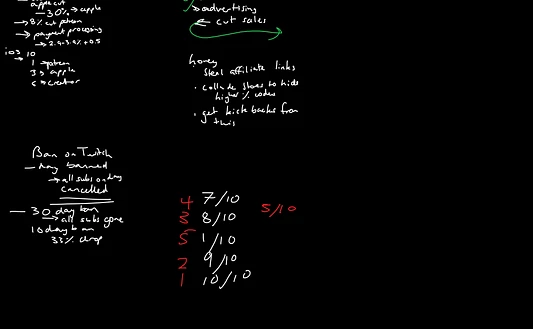 apple cut
→ 30% → apple
→ 8% cut patreon
→ payment processing
→ 2.9-3.9% + 0.5
ios 10
1 patreon
3 apple
6 → creator
→ advertising
← cut sales
honey
steal affiliate links
• collude stores to hide
higher % codes
• get kick backs from
this
Ban on Twitch
→ day banned
→ all subs on day
cancelled
— 30 day ban
→ all subs gone
10 day ban
33% drop
4 7/10
3 8/10
5/10
5 1/10
2 9/10
1 10/10